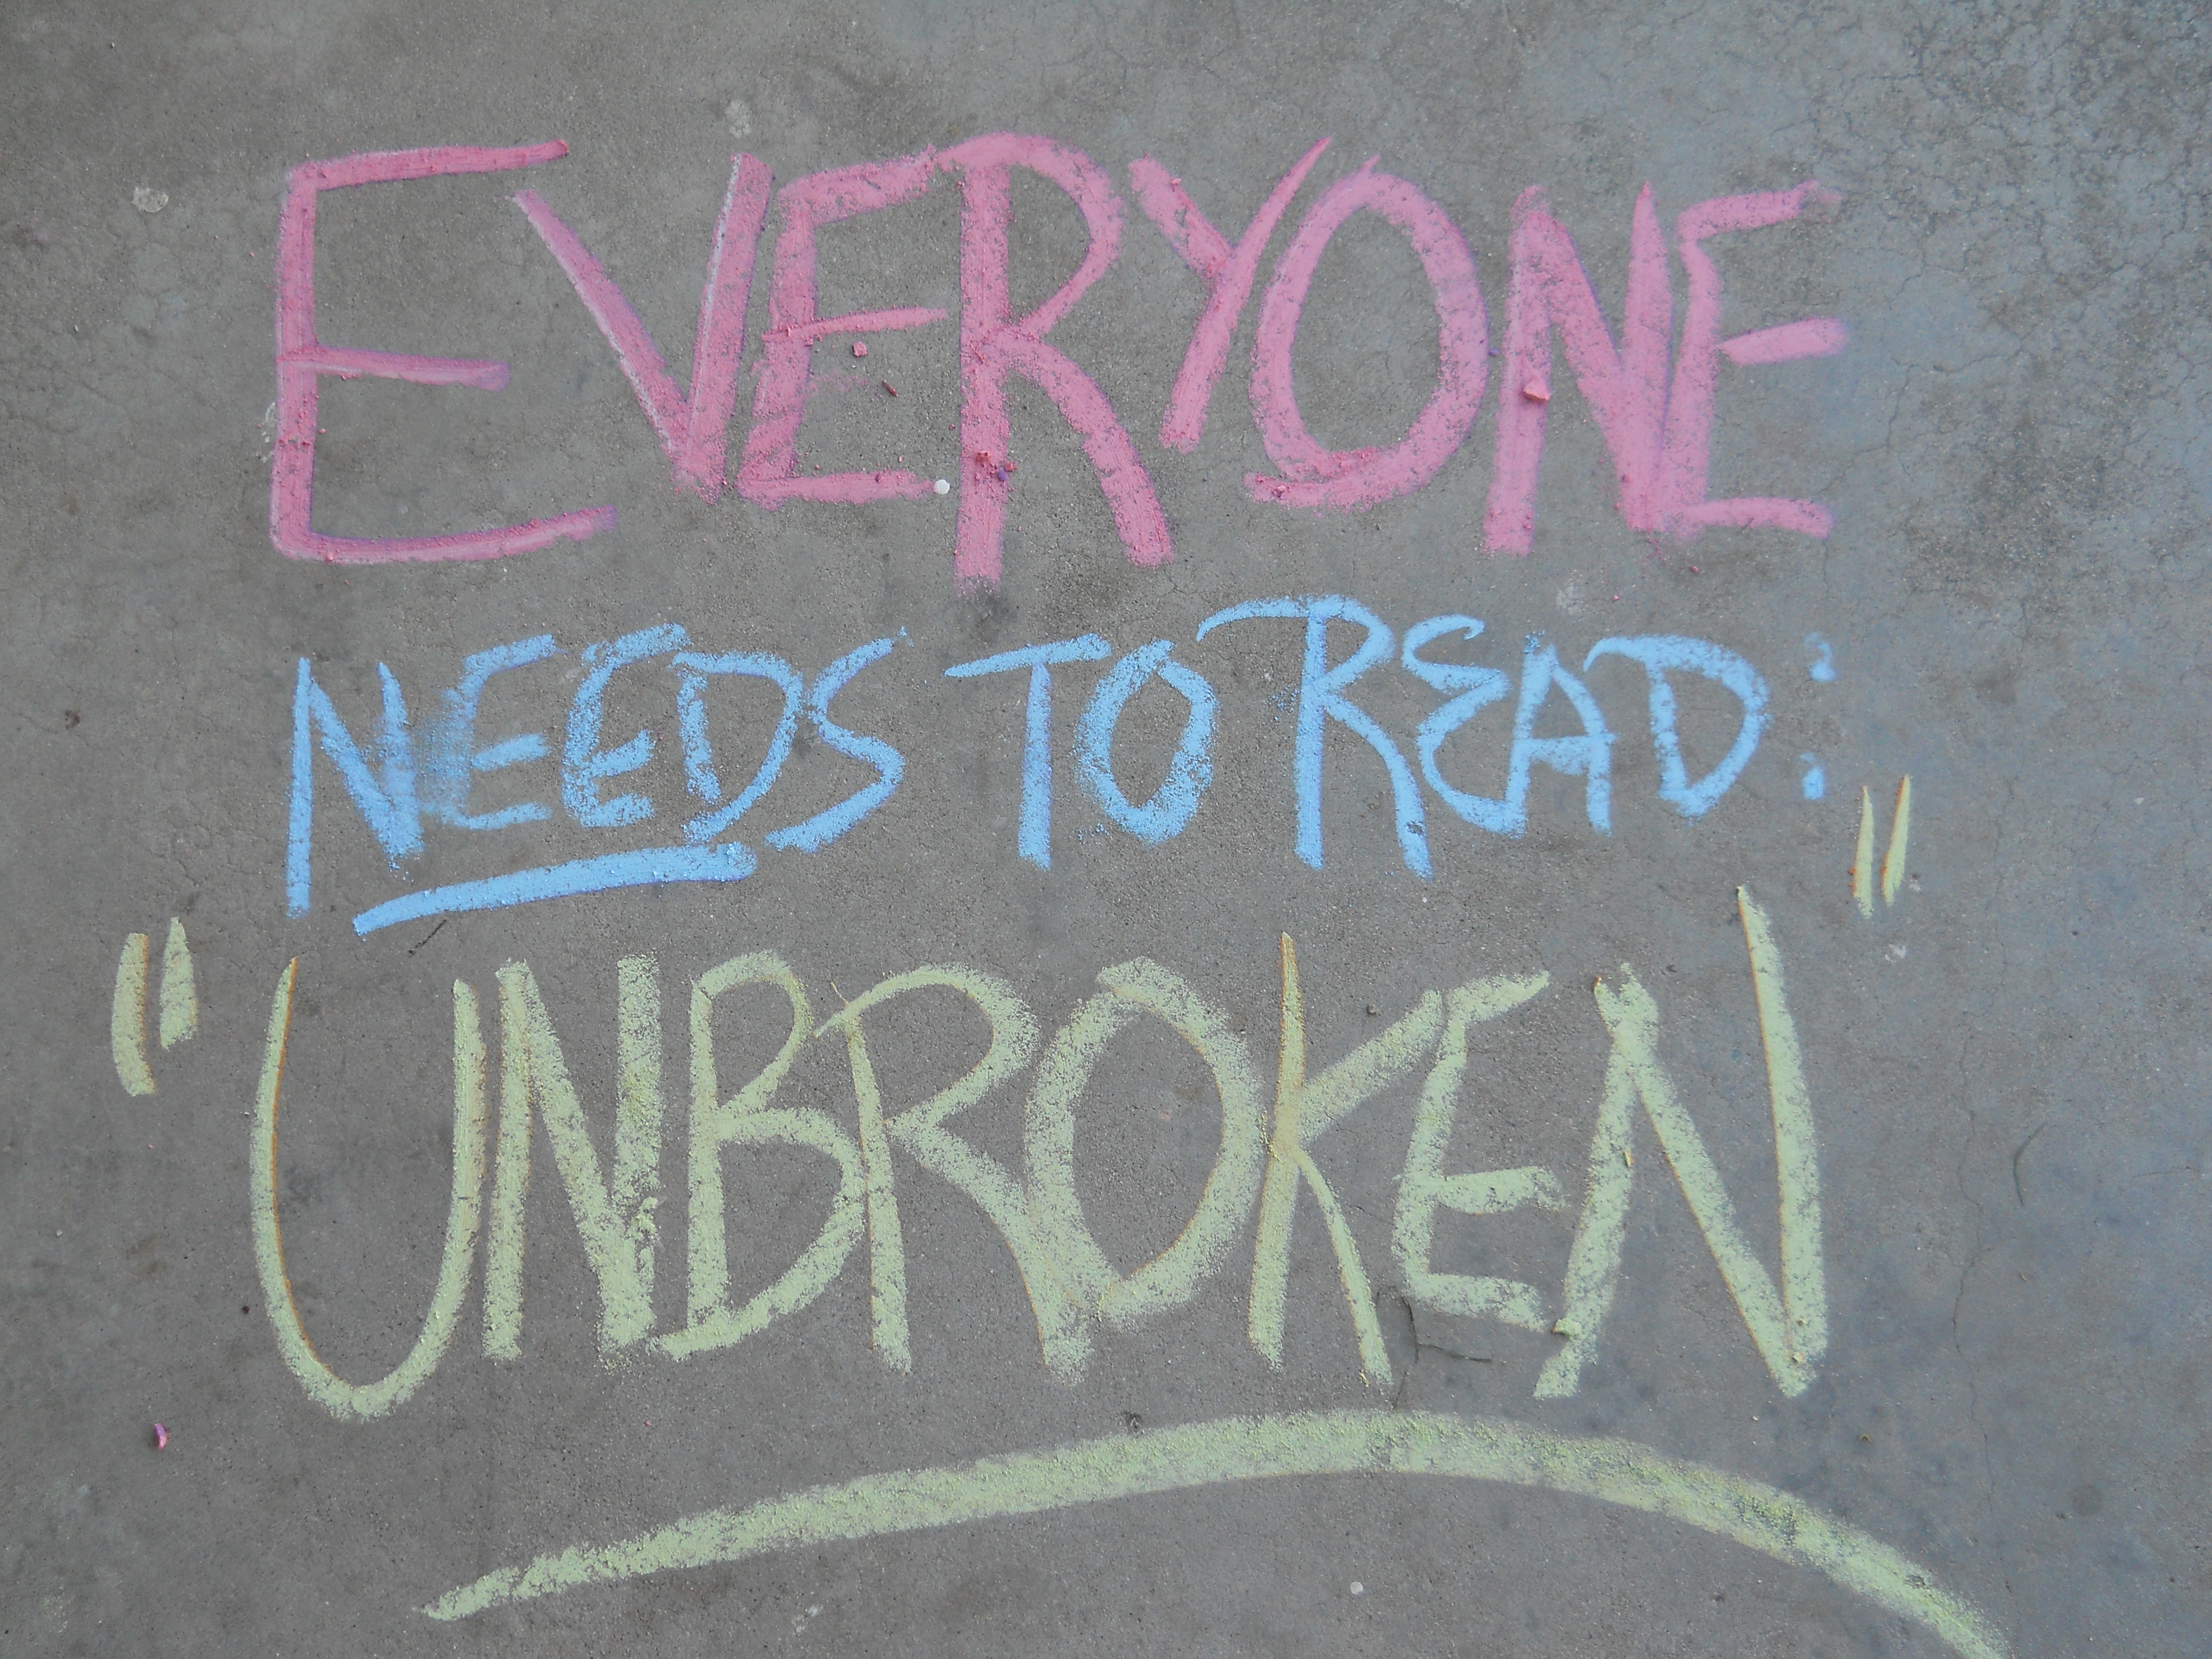 EVERYONE
NEEDS TO READ:
"UNBROKEN"